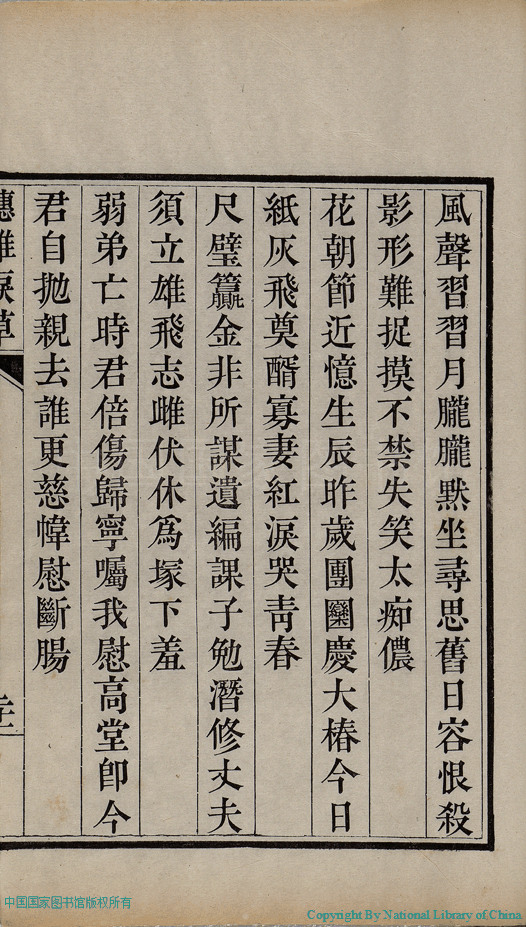 風聲習習月朧朧默坐尋思舊日容恨殺
影形難捉摸不禁失笑太痴儂
花朝節近憶生辰昨歲團圞慶大椿今日
紙灰飛奠醑寡妻紅淚哭靑春
尺璧籯金非所謀遺編課子勉潛修丈夫
須立雄飛志雌伏休爲塚下羞
弱弟亡時君倍傷歸寧囑我慰高堂卽今
君自拋親去誰更慈幃慰斷腸
中国国家图书馆版权所有
Copyright By National Library of China